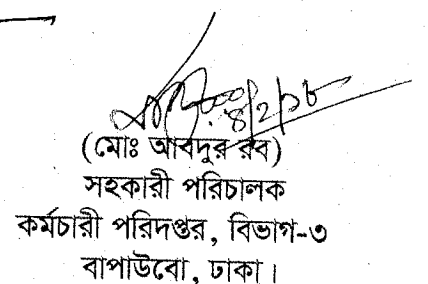 ৪/২/১৮
(মোঃ আবদুর রব)
সহকারী পরিচালক
কর্মচারী পরিদপ্তর, বিভাগ-৩
বাপাউবো, ঢাকা।